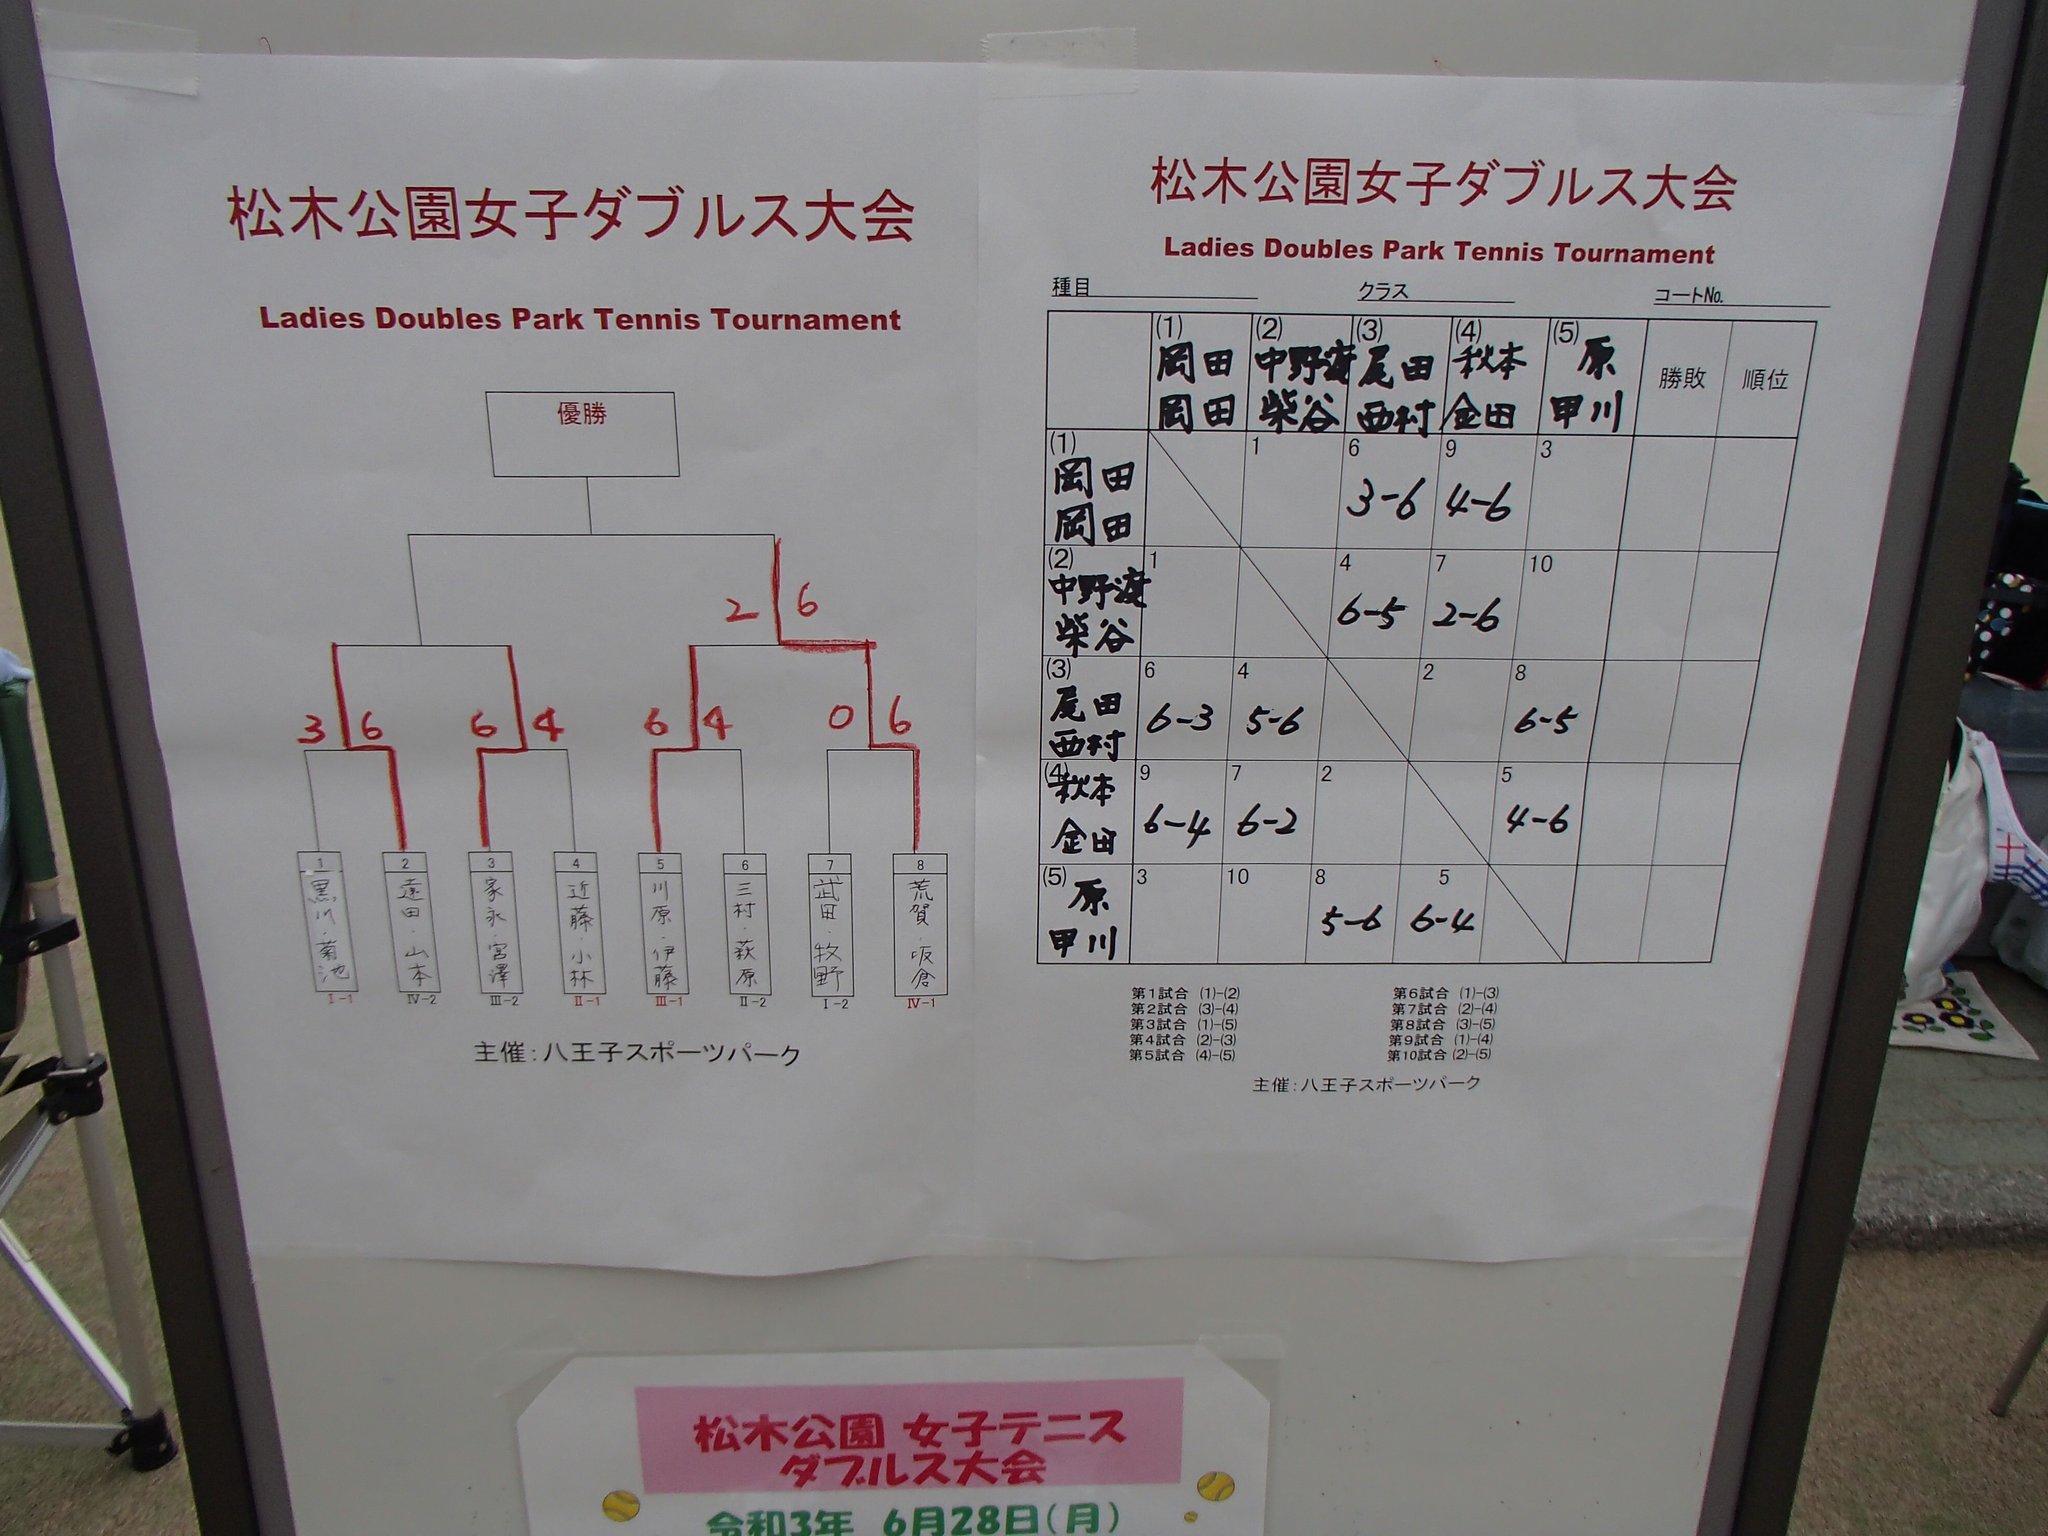 松木公園女子ダブルス大会
Ladies Doubles Park Tennis Tournament
優勝
2 6
3 6 6 4 6 4 0 6
1 2 3 4 5 6 7 8
黒川・菊池
遠田・山本
家永・宮澤
近藤・小林
川原・伊藤
三村・萩原
武田・牧野
荒賀・坂倉
I-1 IV-2 III-2 II-1 III-1 II-2 I-2 IV-1
主催:八王子スポーツパーク
松木公園女子ダブルス大会
Ladies Doubles Park Tennis Tournament
種目 クラス コートNo.
(1) (2) (3) (4) (5)
岡田 中野渡 尾田 秋本 原 勝敗 順位
岡田 柴谷 西村 金田 甲川
(1) 1 6 9 3
岡田 3-6 4-6
岡田
(2) 1 4 7 10
中野渡 6-5 2-6
柴谷
(3) 6 4 2 8
尾田 6-3 5-6 6-5
西村
(4) 9 7 2 5
秋本 6-4 6-2 4-6
金田
(5) 3 10 8 5
原 5-6 6-4
甲川
第1試合 (1)-(2) 第6試合 (1)-(3)
第2試合 (3)-(4) 第7試合 (2)-(4)
第3試合 (1)-(5) 第8試合 (3)-(5)
第4試合 (2)-(3) 第9試合 (1)-(4)
第5試合 (4)-(5) 第10試合 (2)-(5)
主催:八王子スポーツパーク
松木公園 女子テニス
ダブルス大会
令和3年 6月28日(月)